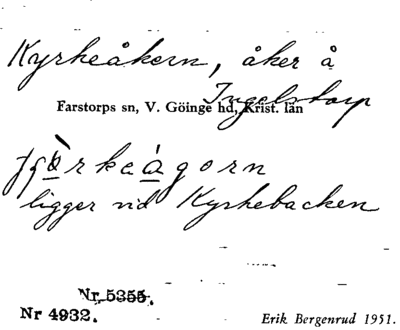 Kyrkeåkern, åker å
Ingelstorp
Farstorps sn, V. Göinge hd, Krist. län
ligger vid Kyrkebacken
Nr 5355.
Nr 4932.
Erik Bergenrud 1951.